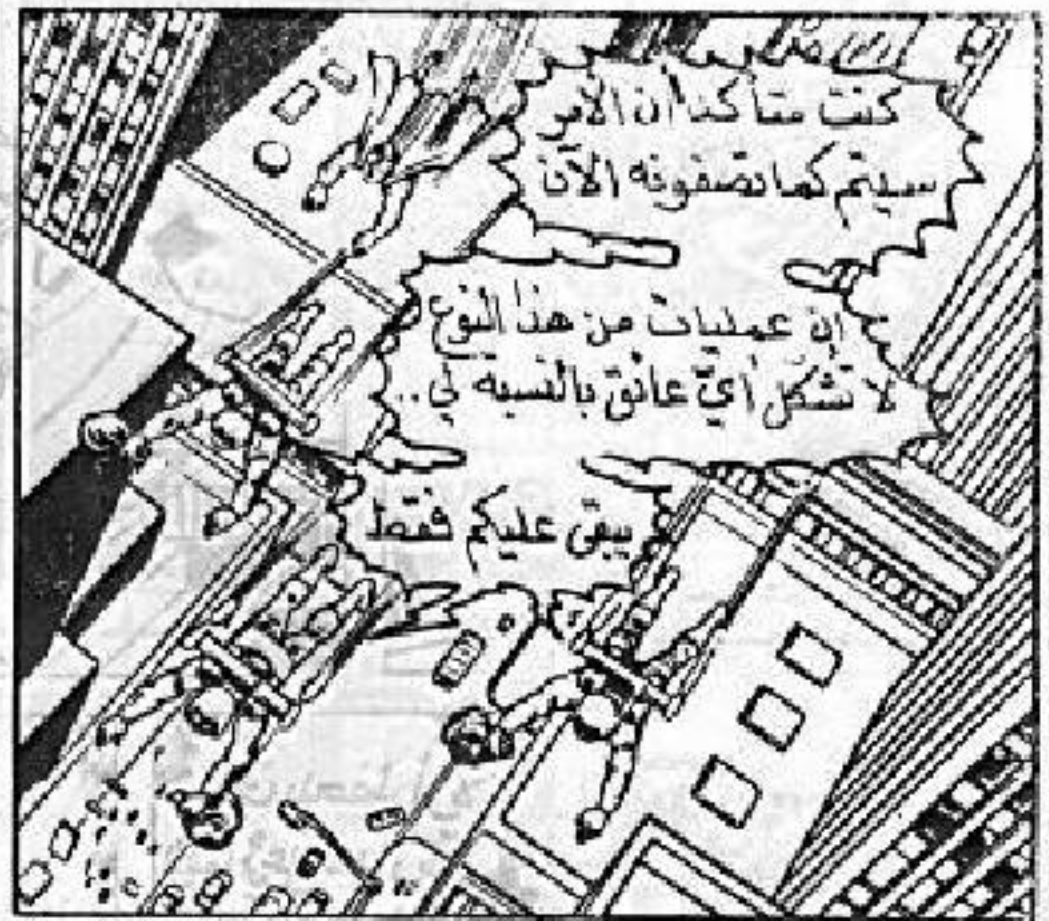 كنت متأكدا أن الأمر
سيتم كما تصفونه الآن
إن عمليات من هذا النوع
لا تشكل أيّ عائق بالنسبة لي..
يبقى عليكم فقط